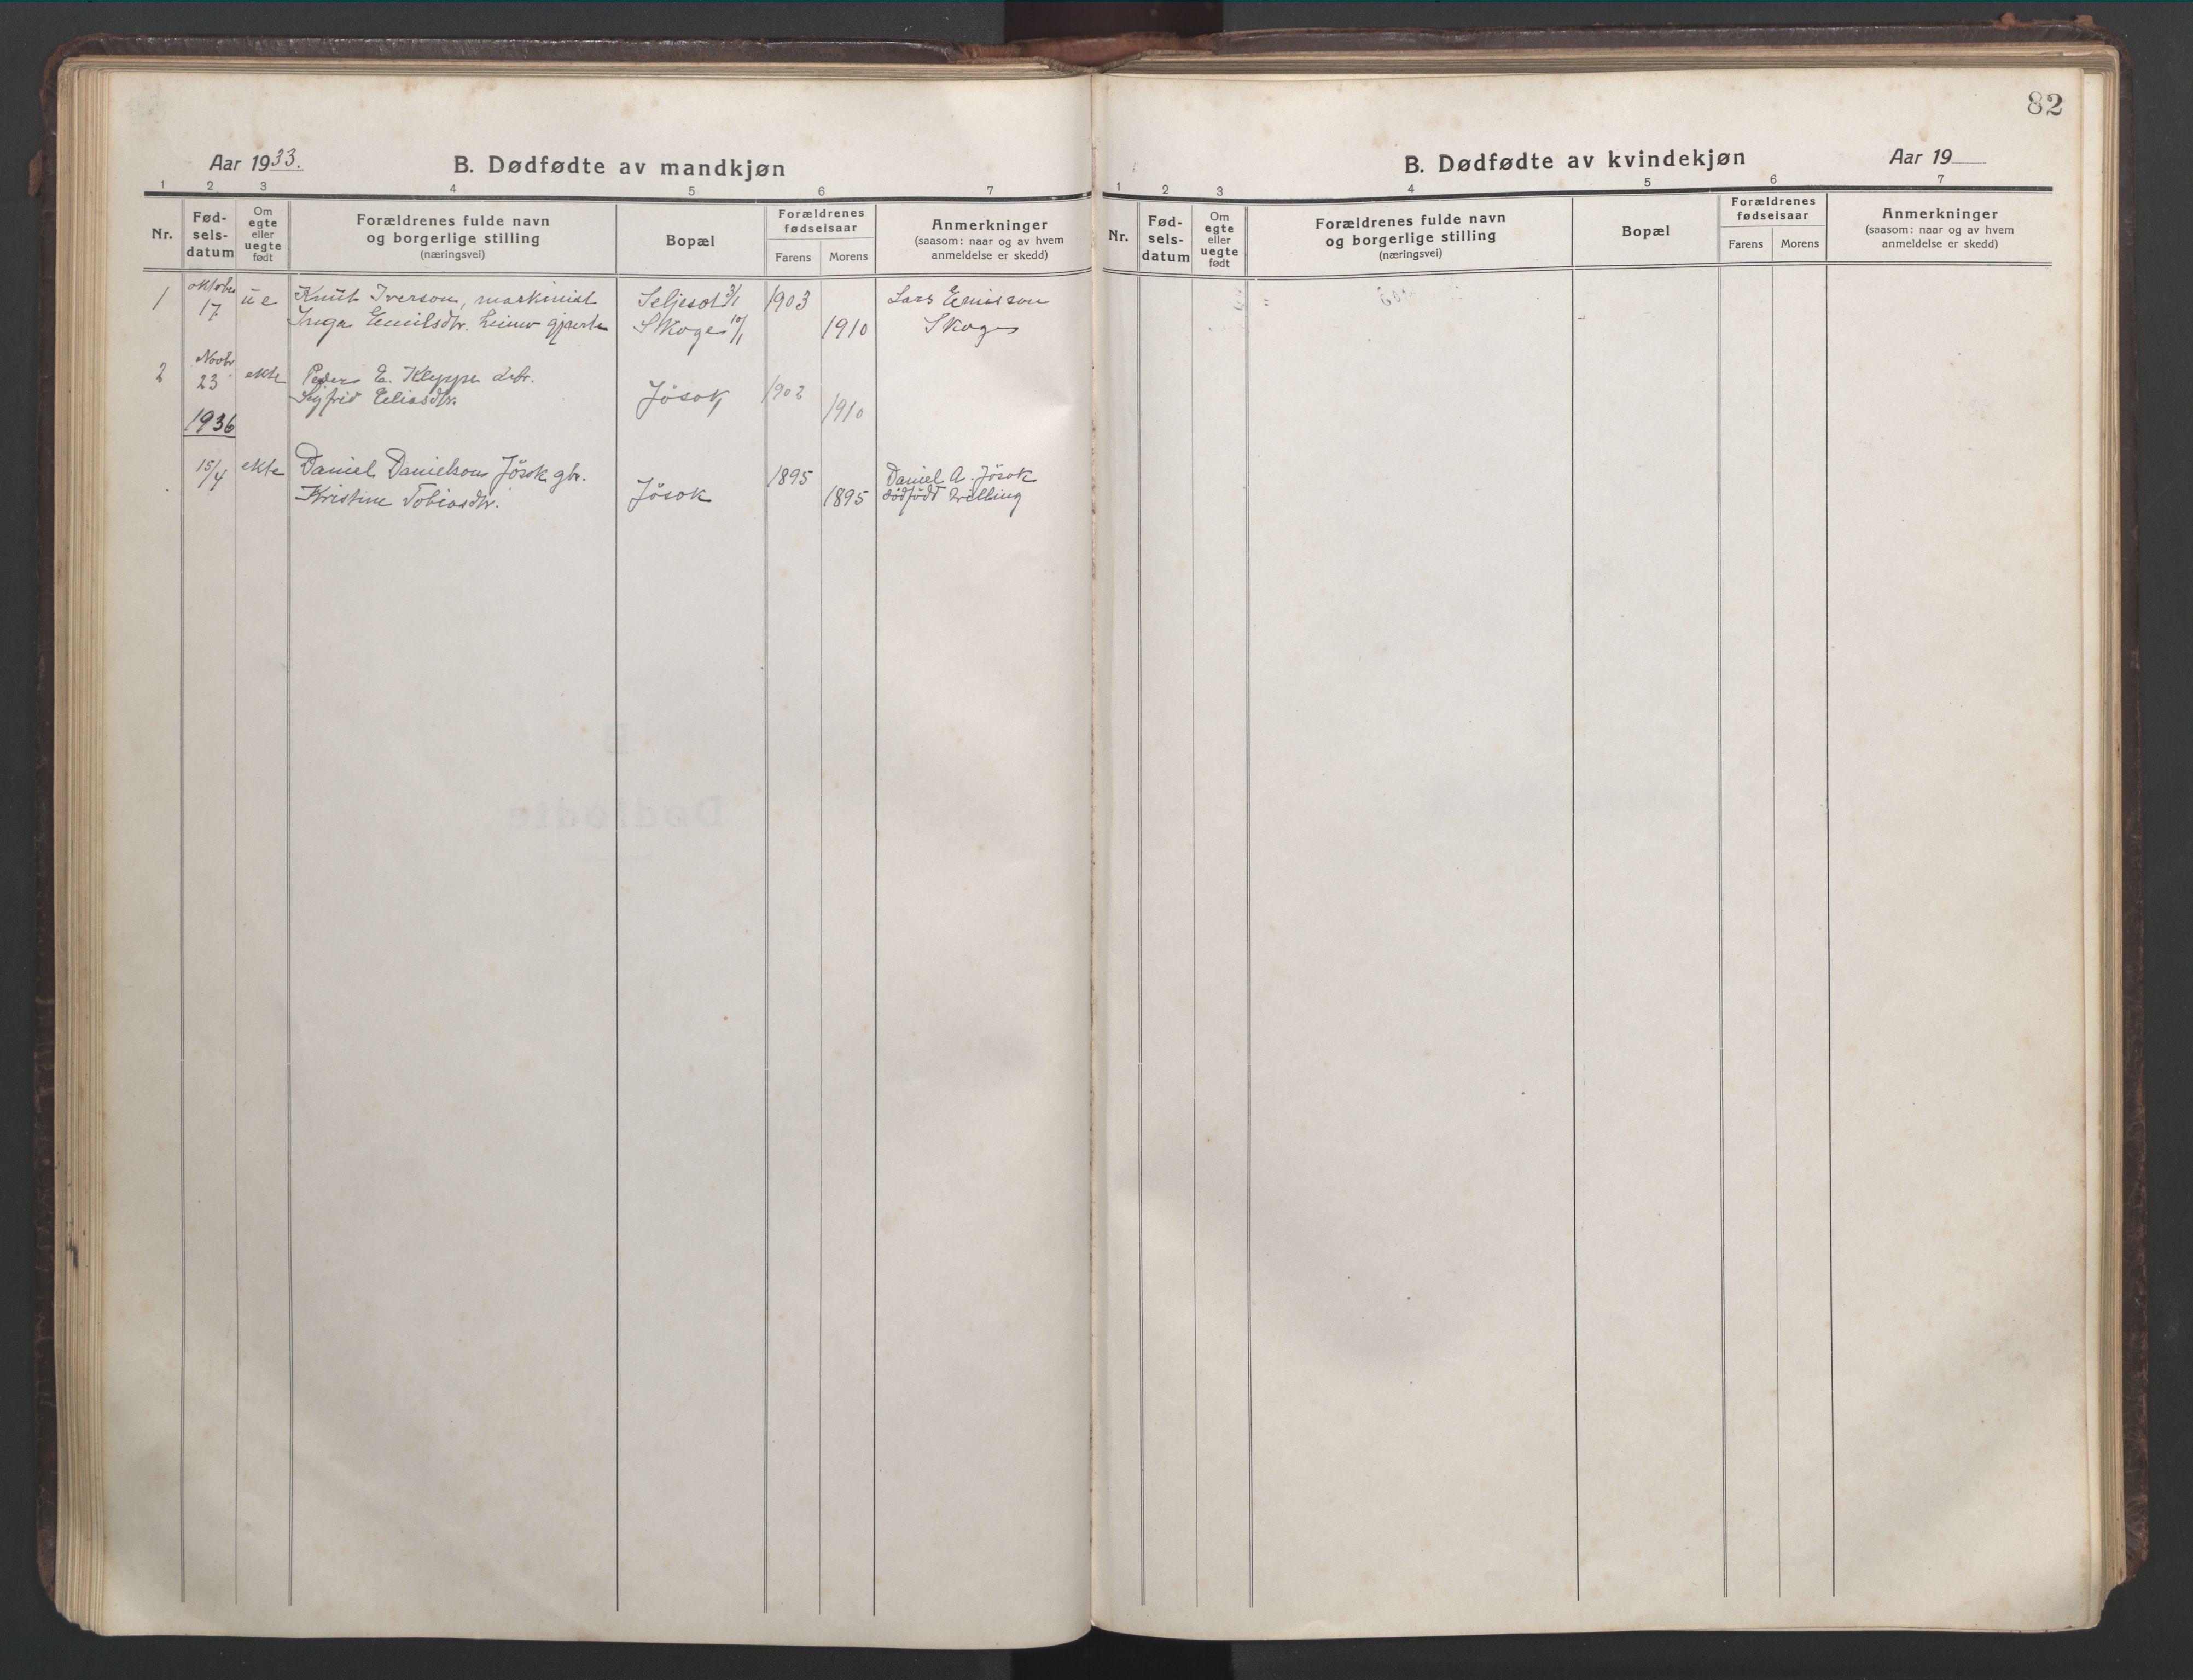 82
Aar 1933.
B. Dødfødte av mandkjøn
1 2 3 4 5 6 7
Nr.
Fød-
sels-
datum
Om
egte
eller
uegte
født
Forældrenes fulde navn
og borgerlige stilling
(næringsvei)
Bopæl
Forældrenes
fødselsaar
Farens Morens
Anmerkninger
(saasom: naar og av hvem
anmeldelse er skedd)
oktober
1 17 ue Knut Iverson, maskinist Seljesot 3/1 1903 Lars
Inga Emilsdtr. Skoge 10/1 1910 Skoge
Novbr
2 23 ekte Peder E. Kleppe
Sigfrid Eliasdtr. Jøsok 1902 1910
1936
15/4 ekte Daniel Danielson Jøsok gbr. 1895 Daniel A. Jøsok
Kristine Tobiasdtr. Jøsok 1895 dødfødt tvilling
B. Dødfødte av kvindekjøn
Aar 19
1 2 3 4 5 6 7
Nr.
Fød-
sels-
datum
Om
egte
eller
uegte
født
Forældrenes fulde navn
og borgerlige stilling
(næringsvei)
Bopæl
Forældrenes
fødselsaar
Farens Morens
Anmerkninger
(saasom: naar og av hvem
anmeldelse er skedd)